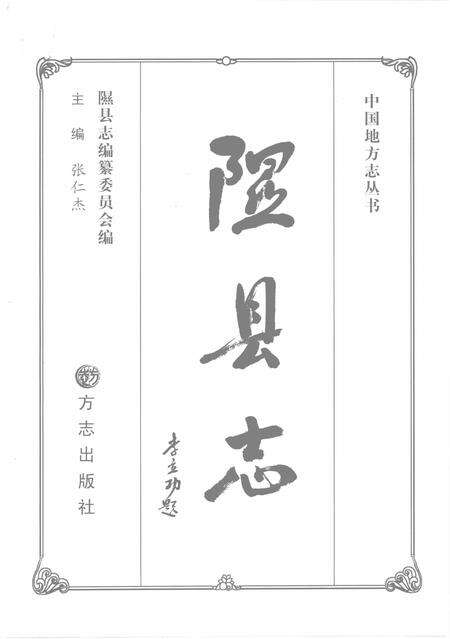 中国地方志丛书
隰县志
李立功题
隰县志编纂委员会编
主编 张仁杰
方志出版社